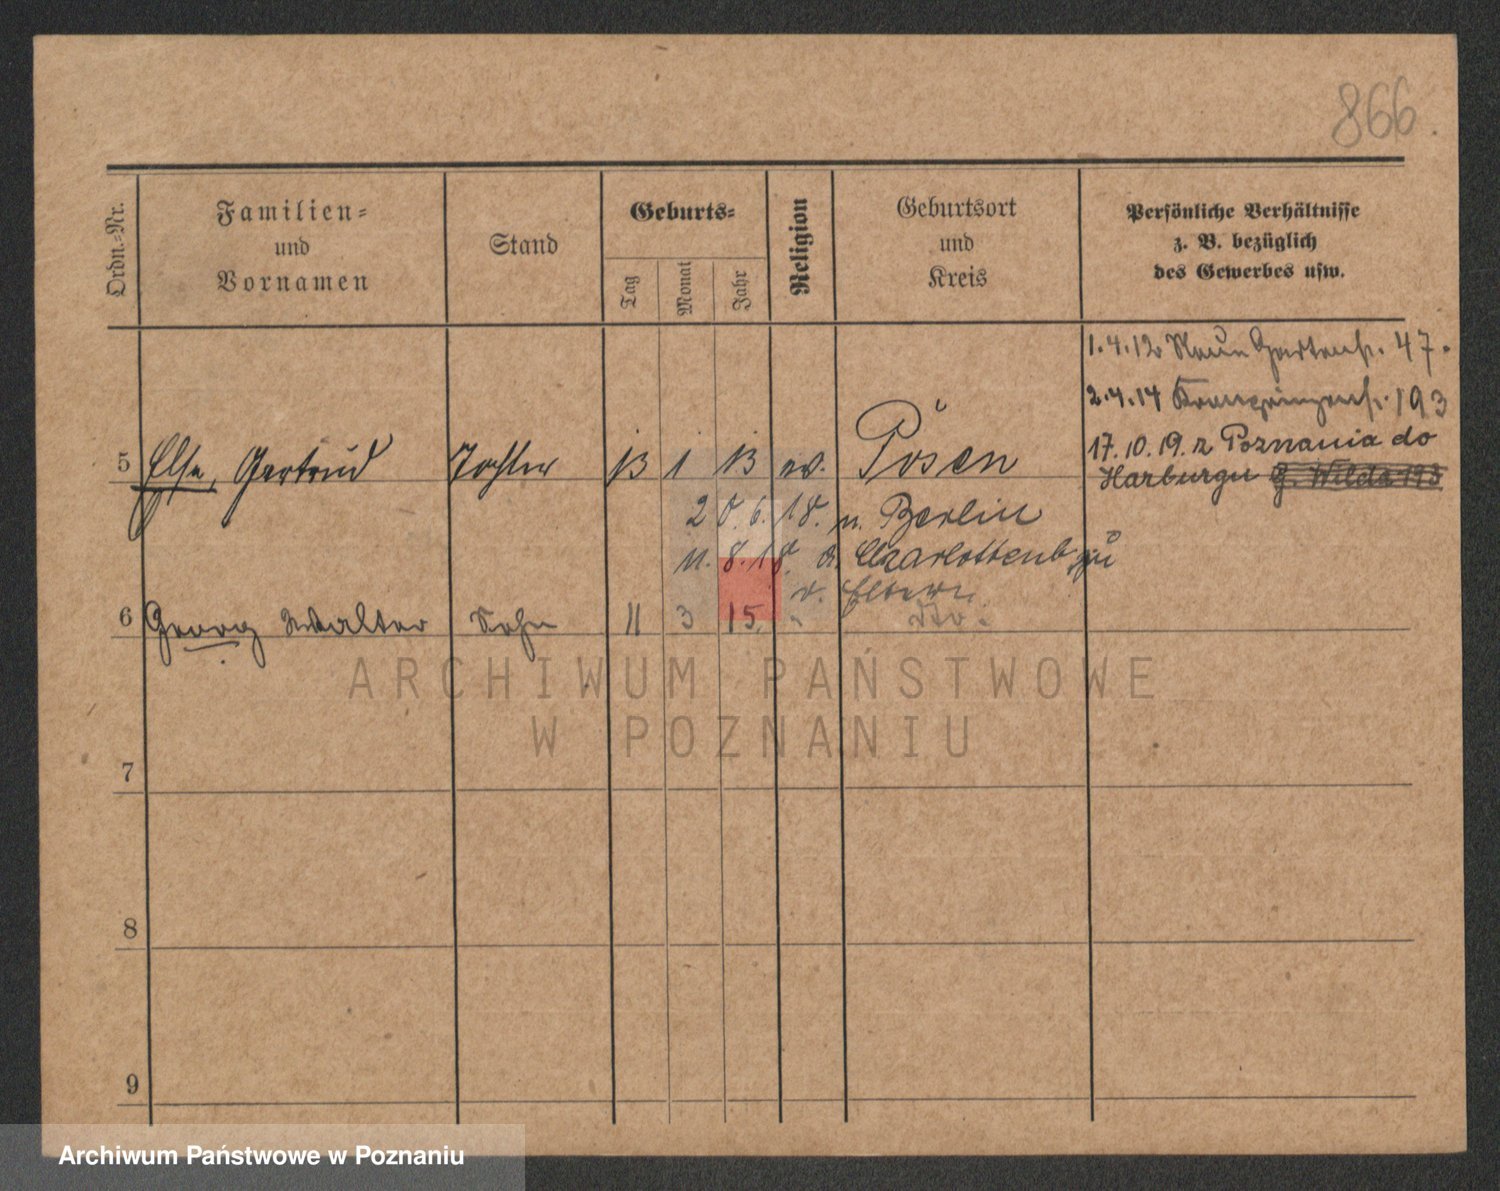 866.
Ordn.-Nr.
Familien-
und
Vornamen
Stand
Geburts-
Tag
Monat
Jahr
Religion
Geburtsort
und
Kreis
Persönliche Verhältnisse
z. B. bezüglich
des Gewerbes usw.
1.4.12 Neue Gartenstr. 47.
2.4.14 Kronprinzenstr. 193
17.10.19. z Poznania do
Harburgu G. Wilda 193
5 Else, Gertrud Tochter 13 1 13 ev. Posen
20.6.18. n. Berlin
11.8.18. a. Charlottenb. zu
d. Eltern
6 Georg Walter Sohn 11 3 15. - dto.
ARCHIWUM PAŃSTWOWE
W POZNANIU
7
8
9
Archiwum Państwowe w Poznaniu